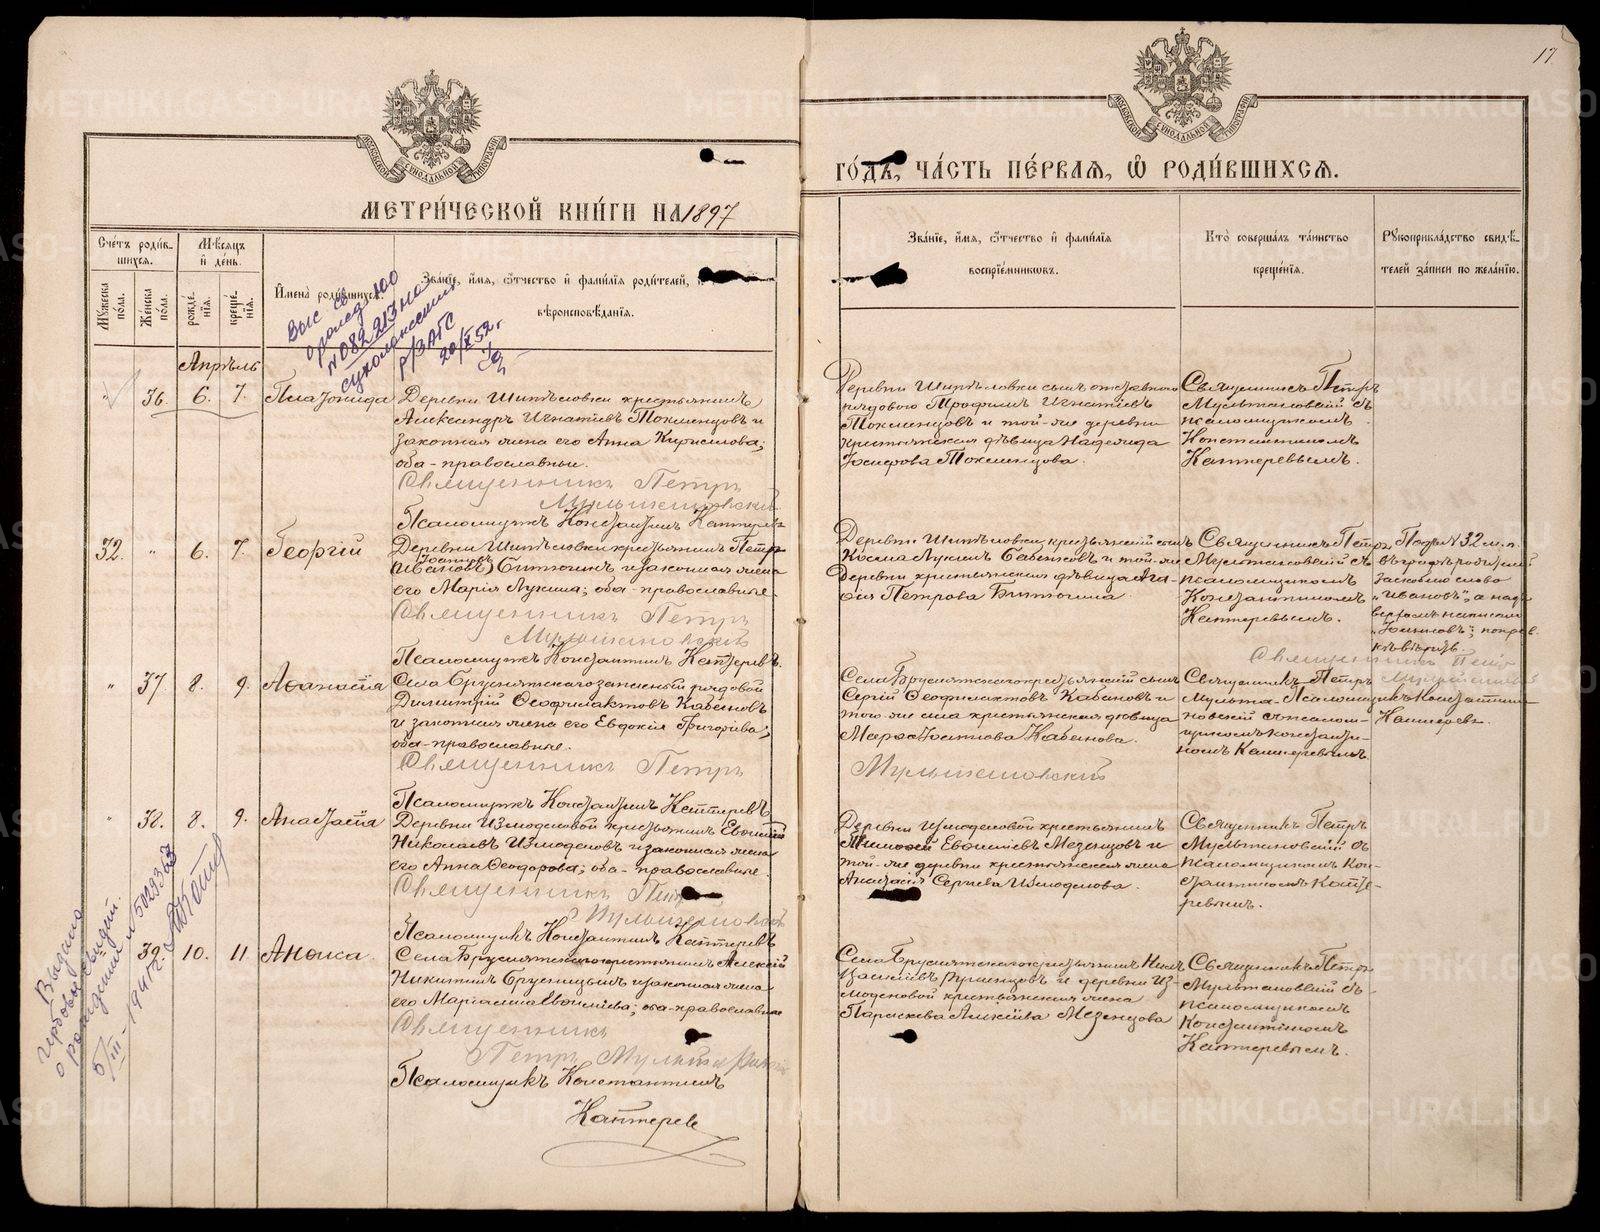 17
МЕТРИ́ЧЕСКОЙ КНИ́ГИ НА 1897
ГО́ДЪ, ЧА́СТЬ ПЕ́РВАЯ, Ѡ҆ РОДИ́ВШИХСЯ.
Счетъ роди́в-
шихся.
Му́жеска по́ла.
Же́нска по́ла.
Мѣ́сяцъ и де́нь.
рожде́-
нїя.
креще́-
нїя.
Имена̀ роди́вшихся.
Зва́нїе, и́мя, о́тчество и фами́лїя роди́телей, и
вѣроисповѣ́данїя.
Зва́нїе, и́мя, о́тчество и фами́лїя
воспрїе́мниковъ.
Кто̀ соверша́лъ та́инство
креще́нїя.
Рукоприкла́дство свидѣ́-
телей за́писи по жела́нїю.
№ 082 213
р/ЗАГС
20/X 52 г.
Апрѣль
" 36. 6. 7.
Деревни Шипѣловки крестьянинъ
Александръ Игнатіевъ Токменцовъ и
законная жена его Анна Кириллова;
оба - православныи.
Священникъ Петръ
Мультановскій
Псаломщикъ Константинъ Кантеревъ
Деревни Шипѣловки сынъ отставного
рядового Трофимъ Игнатіевъ
Токменцовъ и той-же деревни
крестьянская дѣвица Надежда
Іосифова Токменцова.
Священникъ Петръ
Мультановскій съ
псаломщикомъ
Константиномъ
Кантеревымъ.
32. " 6. 7. Георгій
Деревни Шипѣловки крестьянинъ Петръ
Ивановъ Битюгинъ и законная жена
его Марія Лукина; оба - православные.
Священникъ Петръ
Мультановскій
Псаломщикъ Константинъ Кантеревъ.
Деревни Шипѣловки крестьянскій сынъ
Косма Лукинъ Бабиновъ и той-же
деревни крестьянская дѣвица Ага-
фія Петрова Битюгина.
Священникъ Петръ
Мультановскій съ
псаломщикомъ
Константиномъ
Кантеревымъ.
Подъ № 32 м. п.
въ графѣ родителей
"Ивановъ", а надъ
верхомъ написано
Священникъ Петръ
Мультановскій
Псаломщикъ Константинъ
Кантеревъ.
" 37 8. 9. Аѳанасія
Села Бруснятскаго запасный рядовой
Димитрій Ѳеофилактовъ Кабановъ
и законная жена его Евдокія Григорьева;
оба-православные.
Священникъ Петръ
Мультановскій
Псаломщикъ Константинъ Кантеревъ
Села Бруснятскаго крестьянскій сынъ
Сергій Ѳеофилактовъ Кабановъ и
того-же села крестьянская дѣвица
Кабанова.
Священникъ Петръ
Мульта-
новскій съ псалом-
щикомъ Констан-
номъ Кантеревымъ.
" 38. 8. 9. Анастасія
Деревни Измоденовой крестьянинъ Евфимій
Николаевъ Измоденовъ и законная жена
его Анна Ѳеодорова; оба - православные.
Священникъ Петръ
Мультановскій
Псаломщикъ Константинъ Кантеревъ
Деревни Измоденовой крестьянинъ
Тимофей Евфиміевъ Мезенцовъ и
той-же деревни крестьянская жена
Анастасія Сергіева Измоденова.
Священникъ Петръ
Мультановскій съ
псаломщикомъ Кон-
стантиномъ Канте-
ревымъ.
" 39. 10. 11. Анѳиса.
Села Бруснятскаго крестьянинъ Алексѣй
Никитинъ Брусницынъ и законная жена
его Маріамна Евфиміева; оба-православные
Священникъ
Петръ Мультановскій
Псаломщикъ Константинъ
Кантеревъ
Села Бруснятскаго крестьянинъ
и деревни Из-
моденовой крестьянская жена
Параскева Алексіева Мезенцова
Священникъ Петръ
Мультановскій съ
псаломщикомъ
Константиномъ
Кантеревымъ.
Выдано
гербовое свидет.
о рождении № 5029363
5/III - 1941 г.